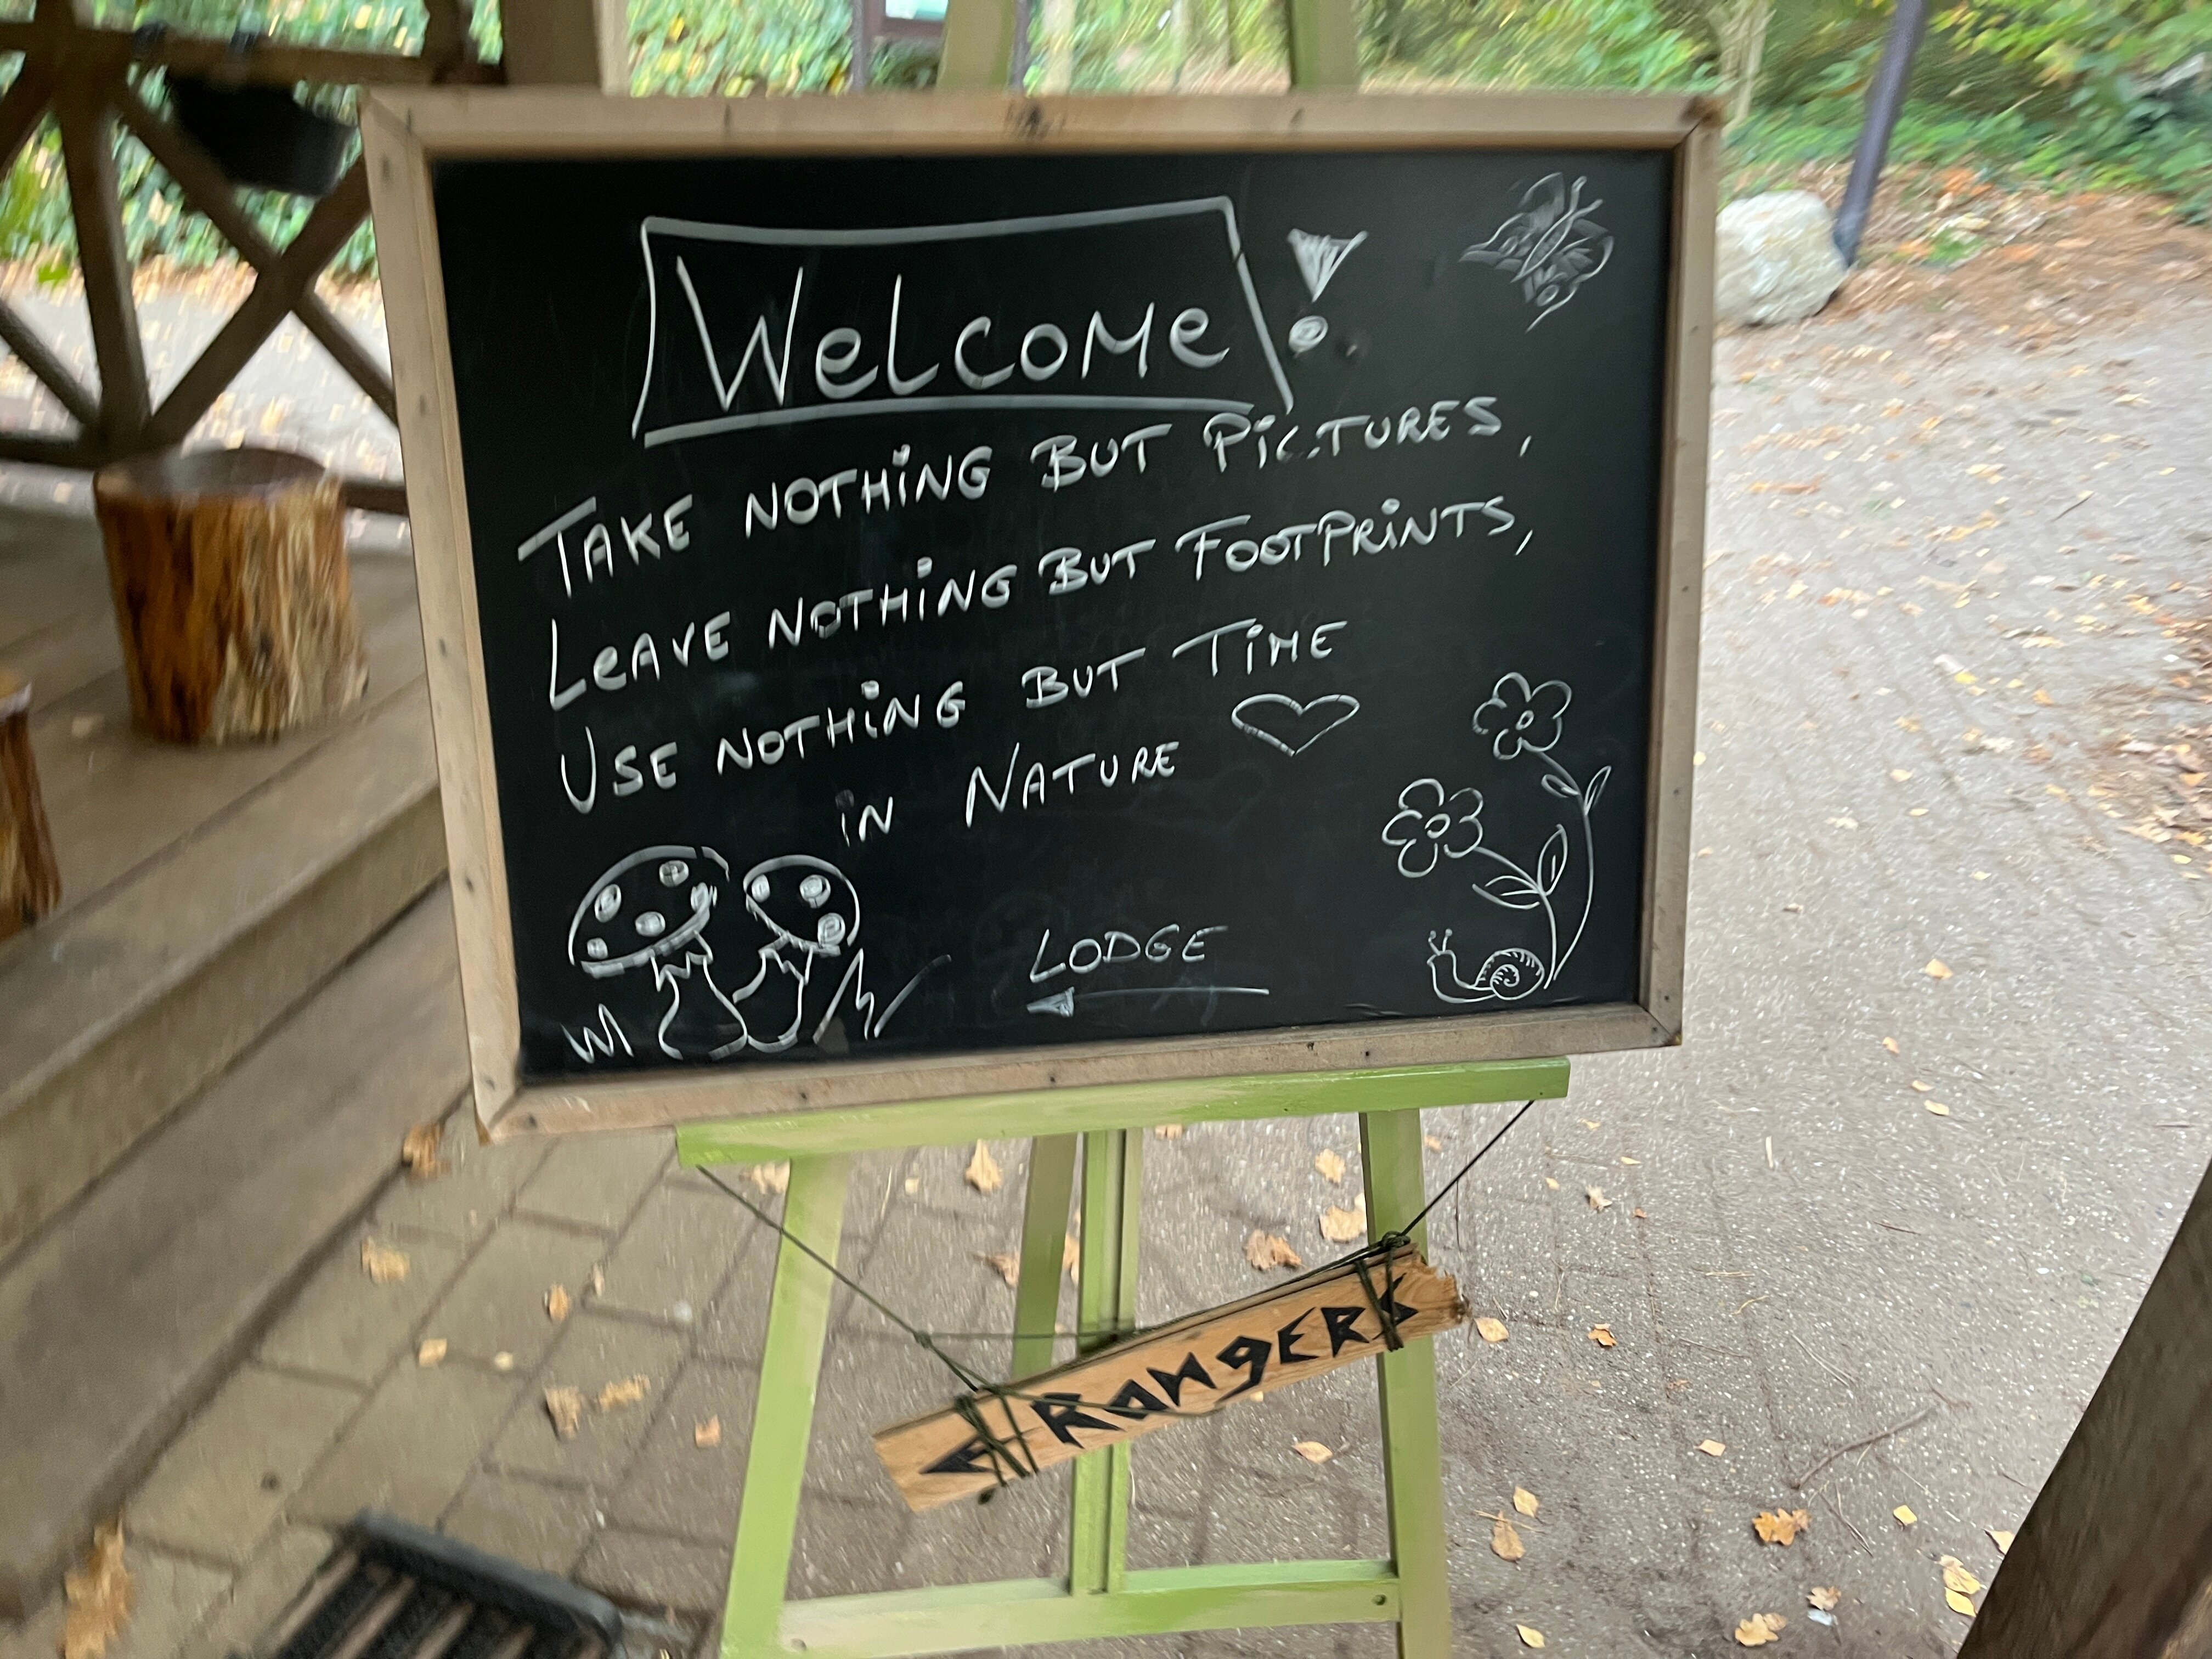 Welcome!
TAKE NOTHiNG BUT PiCTURES,
LeAVE NOTHiNG BUT FOOTPRiNTS,
USE NOTHiNG BUT TiME
iN NATURE
LODGE
RANgERS